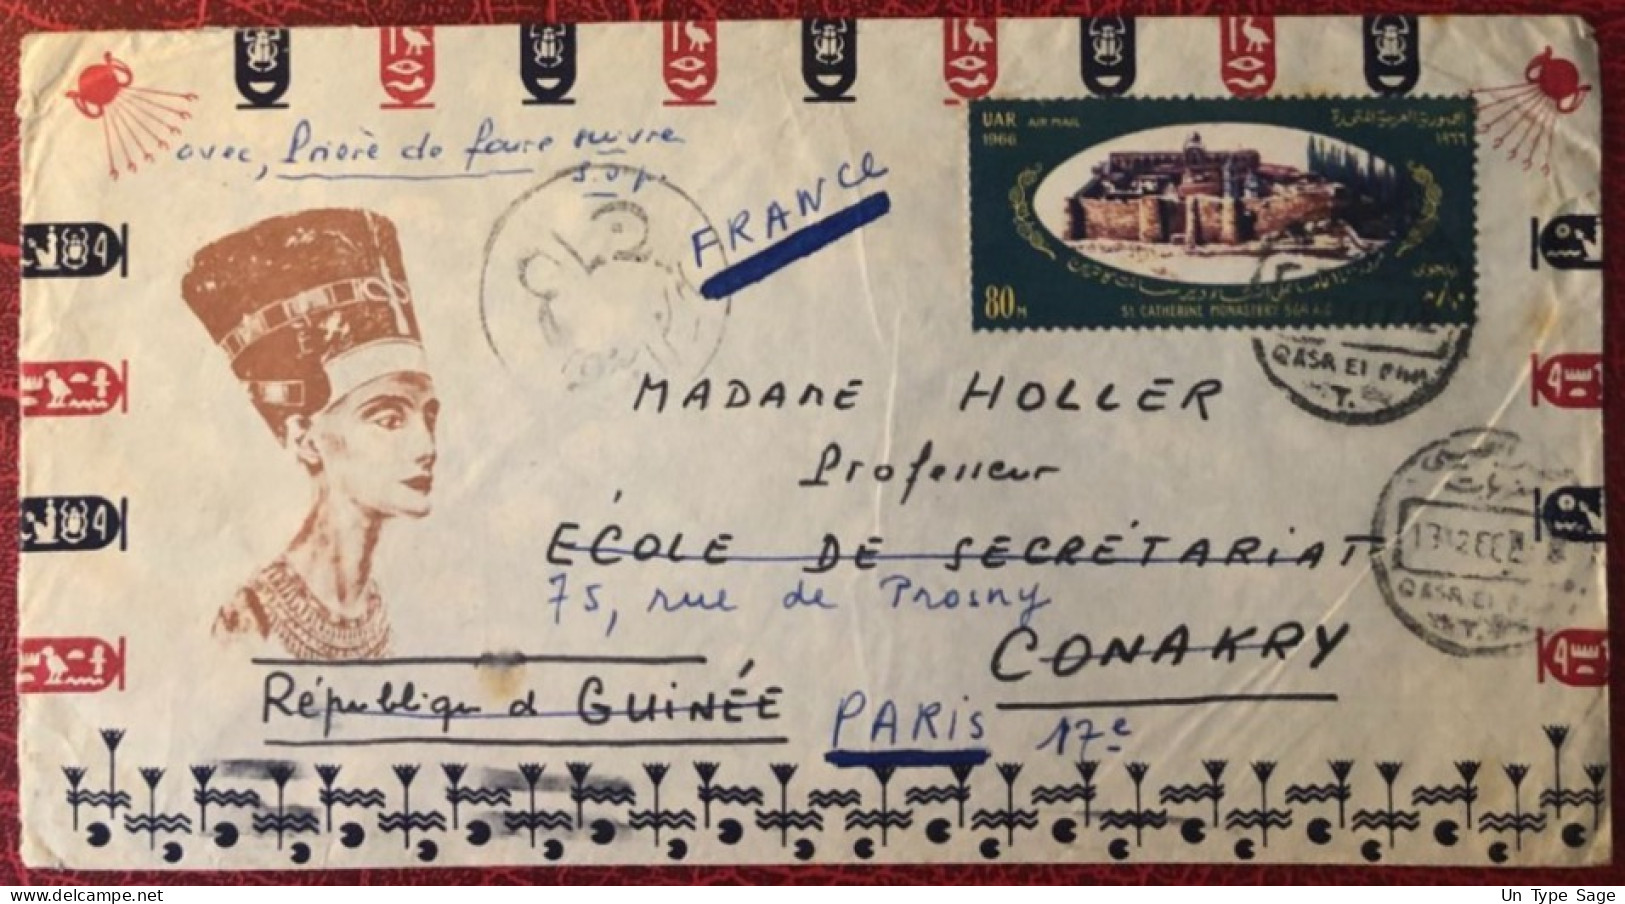 avec, Prière de faire suivre
s.v.p.
FRANCE
UAR AIR MAIL
1966
الجمهورية العربية المتحدة
١٩٦٦
80 M
St CATHERINE MONASTERY
QASR EL
T.
MADAME HOLLER
Professeur
ÉCOLE DE SECRÉTARIAT
75, rue de Prosny
CONAKRY
République d GUINÉE
PARIS 17e
QASR EL
T.
Un Type Sage